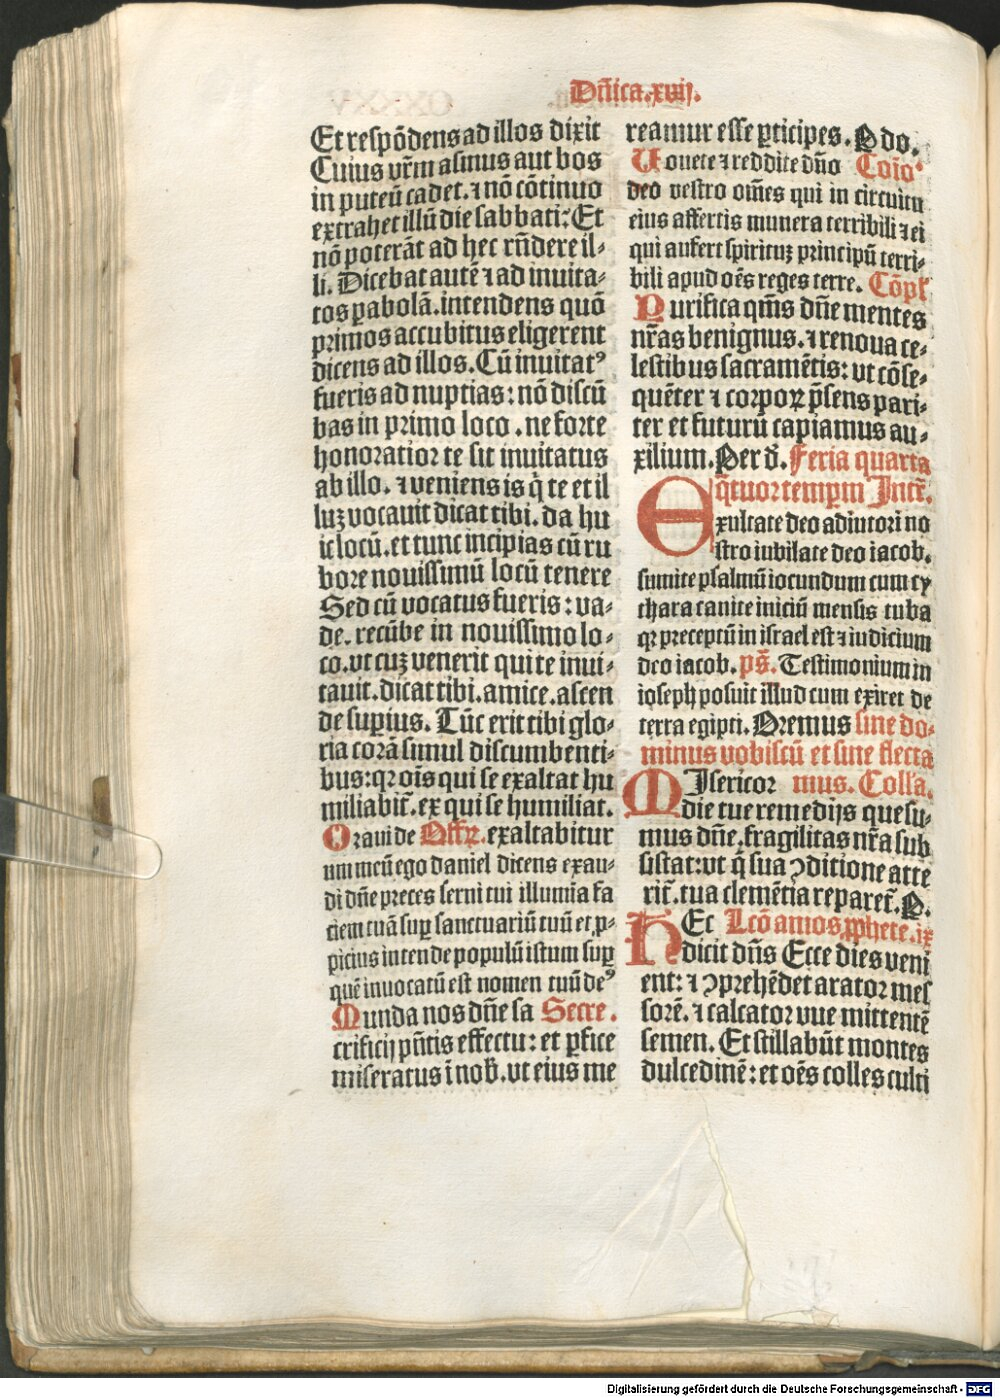 Dñica.xvij.
Et respōdens ad illos dixit
Cuius vr̃m asinus aut bos
in puteū cadet. ⁊ nō cōtinuo
extrahet illū die sabbati: Et
nō poterāt ad hec rñdere il-
li. Dicebat autē ⁊ ad inuita-
tos ꝑabolā. intendens quō
primos accubitus eligerent
dicens ad illos. Cū inuitatꝰ
fueris ad nuptias: nō discū
bas in primo loco. ne forte
honoratior te sit inuitatus
ab illo. ⁊ veniens is q̇ te et il
luꝫ vocauit dicat tibi. da hu
ic locū. et tunc incipias cū ru
bore nouissimū locū tenere
Sed cū vocatus fueris: va-
de. recūbe in nouissimo lo-
co. vt cuꝫ venerit qui te inui-
tauit. dicat tibi. amice. ascen
de supius. Tūc erit tibi glo-
ria corā simul discumbenti-
bus: qꝛ oīs qui se exaltat hu
miliabit̃. ex qui se humiliat.
Oraui de Offꝝ. exaltabitur
um meū ego daniel dicens exau-
di dñe preces serui tui illumīa fa
ciem tuā suꝑ sanctuariū tuū et ꝓ-
picius intende populū istum suꝑ
quē inuocatū est nomen tuū deꝰ
Munda nos dñe sa Secre.
crificij pñtis effectu: et ꝑfice
miseratus ī nob̃. vt eius me
reamur esse ꝑticipes. P do.
Vouete ⁊ reddite dño Cōio
deo vestro om̄es qui in circuitu
eius affertis munera terribili ⁊ ei
qui aufert spirituꝫ principū terri-
bili apud oēs reges terre. Cōpl
Purifica qm̄s dñe mentes
nr̃as benignus. ⁊ renoua ce-
lestibus sacramētis: vt cōse-
quēter ⁊ corpoꝝ p̄sens pari-
ter et futurū capiamus au-
xilium. Per d. Feria quarta
q̄tuor tempm Intr̃.
Exultate deo adiutori no
stro iubilate deo iacob.
sumite psalmū iocundum cum cy
thara canite iniciū mensis tuba
qꝛ preceptū in israel est ⁊ iudicium
deo iacob. ps̄. Testimonium in
ioseph posuit illud cum exiret de
terra egipti. Oremus sine do-
minus vobiscū et sine flecta
MIsericor mus. Colľa.
die tue remedijs quesu-
mus dñe. fragilitas nr̃a sub
sistat: vt q̄ sua ꝯditione atte
rit̃. tua clemētia reparet̃. P.
HEc Lcō amos ꝓphete. ix
dicit dñs Ecce dies veni
ent: ⁊ ꝯprehēdet arator mes
sorē. ⁊ calcator vue mittentē
semen. Et stillabūt montes
dulcedinē: et oēs colles culti
Digitalisierung gefördert durch die Deutsche Forschungsgemeinschaft - DFG